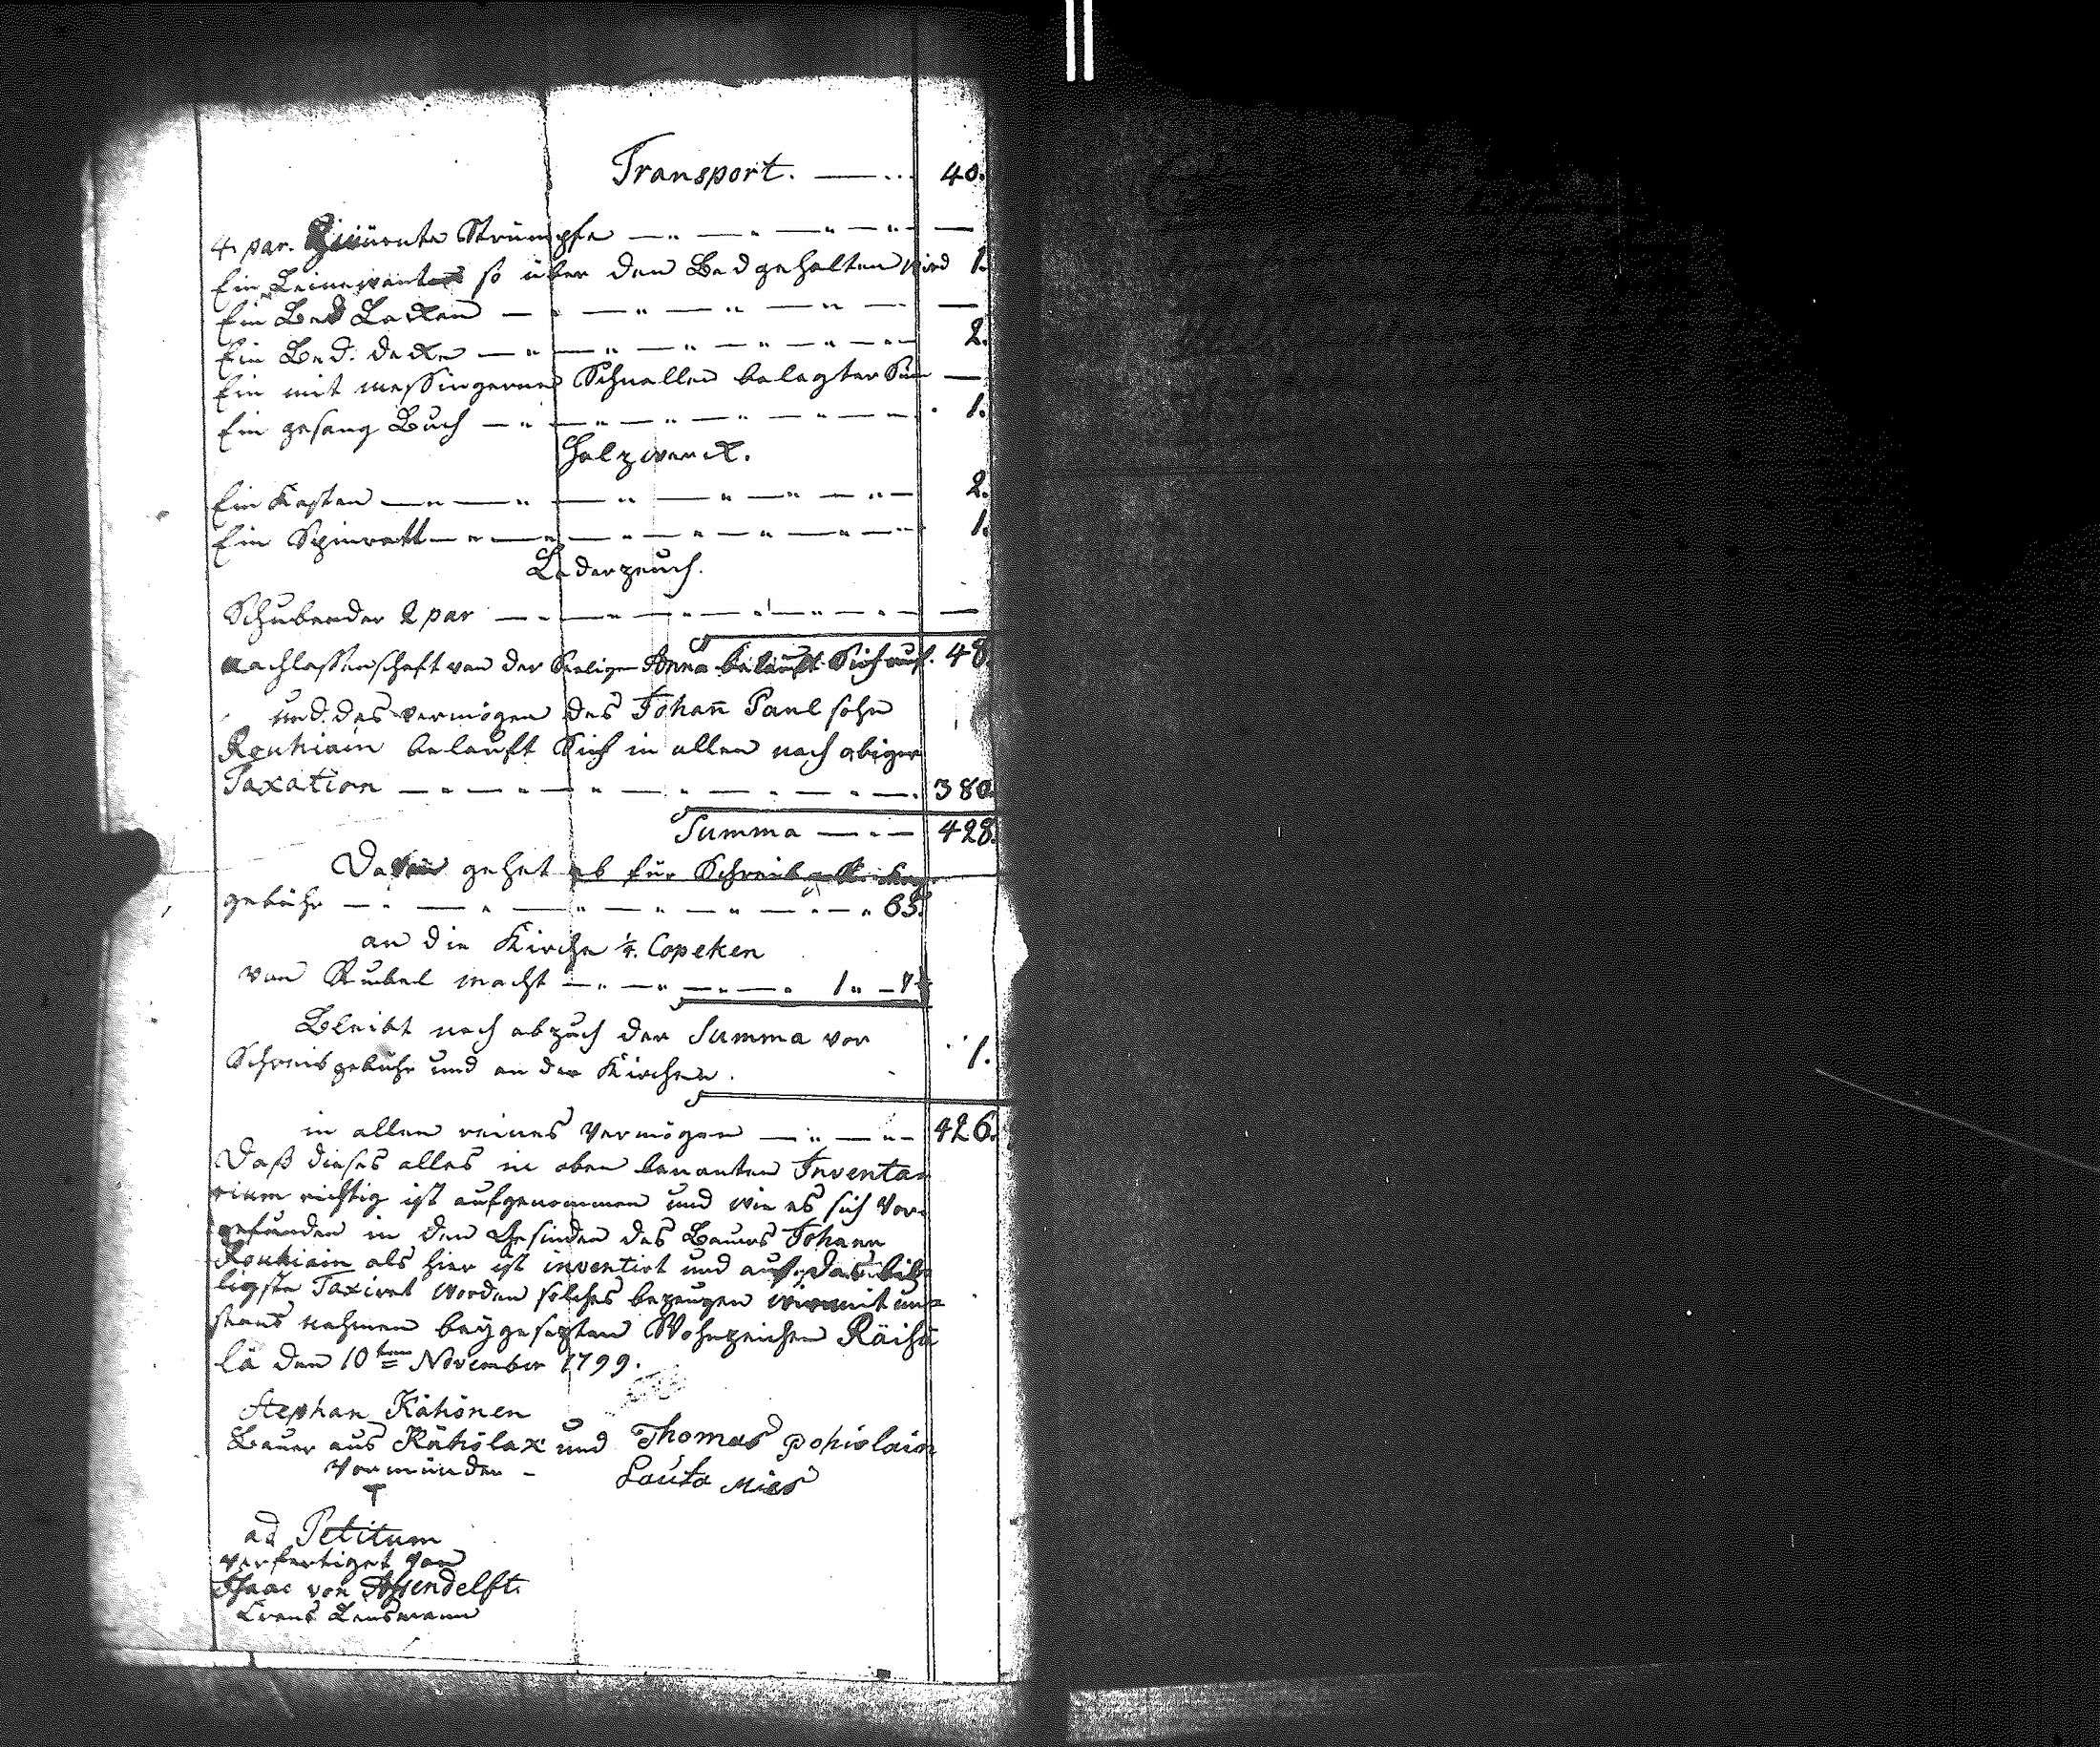 Transport. — .. 40.
4. par. Strümpfe — " — " — " — " — —
Ein Leinewant so über den Bed gehalten wird 1.
Ein Bed Lacken — " — " — " — " — —
Ein Bed: decke — " — " — " — " — " — 2.
Ein mit messingernen Schnallen belagter —
Ein gesang Buch — " — " — " — " — " — 1.
Holzwerck.
Ein Kasten — " — " — " — " — " — " — 2.
Ein Spinratt — " — " — " — " — " — " — 1.
Lederzeuch.
Schubender 2 par — " — " — " — " — " — —
nachlassenschaft von der Seeligen Anna beläuft Sich auf. 48.
und das vermögen des Johan̄ Paul sohn
Rouhiain belauft Sich in allen nach obiger
Taxation — " — " — " — " — " — " — 380.
Summa — " — 428.
Davon gehet ab für Schreib
gebühr — " — " — " — " — " — " 65.
an die Kirche ¼. Copeken
von Rubel macht — " — " — " — " 1 " — 7
Bleibt nach abzuch der Summa vor
Schreibgebühr und an der Kirchen. 1.
in allen reines Vermögen — " — " — 426.
Daß dieses alles in oben benanten Inventa-
rium richtig ist aufgenommen und wie es sich vor-
gefunden in den Gesinden des Bauers Johann
Rouhiain als hier ist inventirt und auf das bil-
ligste Taxiret worden solches bezeugen wir mit un-
sers nahmen beygesezten Wohnzeichen Räisä
lä den 10ten November 1799.
Stephan Kähönen
Bauer aus Kähölax und Thomas Pohiolain
Vormünder - Lauta Mies
T
ad Petitum
verfertiget von
Isaac von Assendelft.
Crons Lensmann